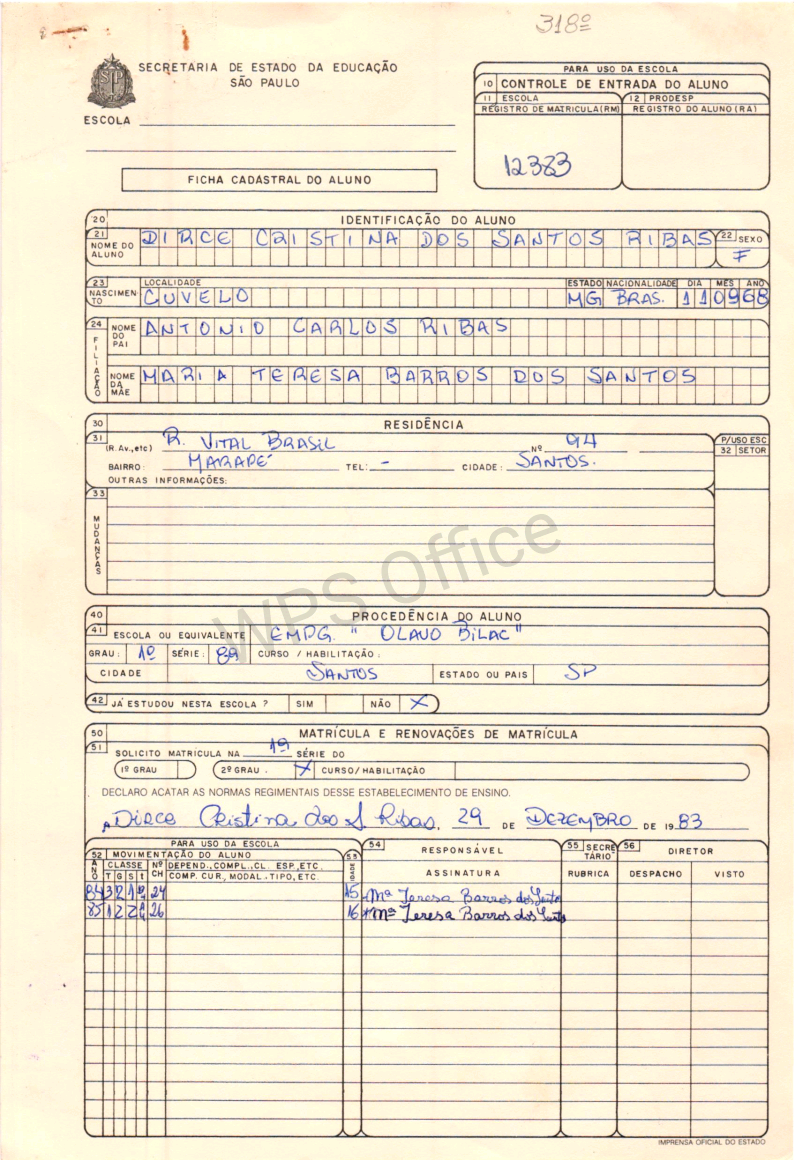 318º
SECRETARIA DE ESTADO DA EDUCAÇÃO
SÃO PAULO
ESCOLA
PARA USO DA ESCOLA
10 CONTROLE DE ENTRADA DO ALUNO
11 ESCOLA 12 PRODESP
REGISTRO DE MATRICULA (RM) REGISTRO DO ALUNO (RA)
12383
FICHA CADASTRAL DO ALUNO
20 IDENTIFICAÇÃO DO ALUNO
21 NOME DO ALUNO DIRCE CRISTINA DOS SANTOS RIBAS 22 SEXO F
23 NASCIMENTO LOCALIDADE ESTADO NACIONALIDADE DIA MES ANO
CUVELO MG BRAS. 11 09 68
24 FILIAÇÃO
NOME DO PAI ANTONIO CARLOS RIBAS
NOME DA MÃE MARIA TERESA BARROS DOS SANTOS
30 RESIDÊNCIA
31 (R. Av., etc) R. VITAL BRASIL Nº 94 P/USO ESC
32 SETOR
BAIRRO: MARAPÉ TEL: - CIDADE: SANTOS.
OUTRAS INFORMAÇÕES:
33 MUDANÇAS
WPS Office
40 PROCEDÊNCIA DO ALUNO
41 ESCOLA OU EQUIVALENTE EMPG. " OLAVO BILAC"
GRAU: 1º SÉRIE: 8ª CURSO / HABILITAÇÃO:
CIDADE SANTOS ESTADO OU PAIS SP
42 JÁ ESTUDOU NESTA ESCOLA ? SIM NÃO X
50 MATRÍCULA E RENOVAÇÕES DE MATRÍCULA
51 SOLICITO MATRICULA NA 1ª SÉRIE DO
1º GRAU 2º GRAU . X CURSO/HABILITAÇÃO
DECLARO ACATAR AS NORMAS REGIMENTAIS DESSE ESTABELECIMENTO DE ENSINO.
Dirce Cristina dos S Ribas, 29 DE DEZEMBRO DE 1983
PARA USO DA ESCOLA 54 RESPONSÁVEL 55 SECRETÁRIO 56 DIRETOR
52 MOVIMENTAÇÃO DO ALUNO 53 IDADE
ANO CLASSE T G S t Nº CH DEPEND., COMPL., CL. ESP., ETC.
COMP. CUR., MODAL. TIPO, ETC. ASSINATURA RUBRICA DESPACHO VISTO
84 3 2 1 24 15 Mª Teresa Barros dos Santos
85 1 2 2 C 26 16 Mª Teresa Barros dos Santos
IMPRENSA OFICIAL DO ESTADO